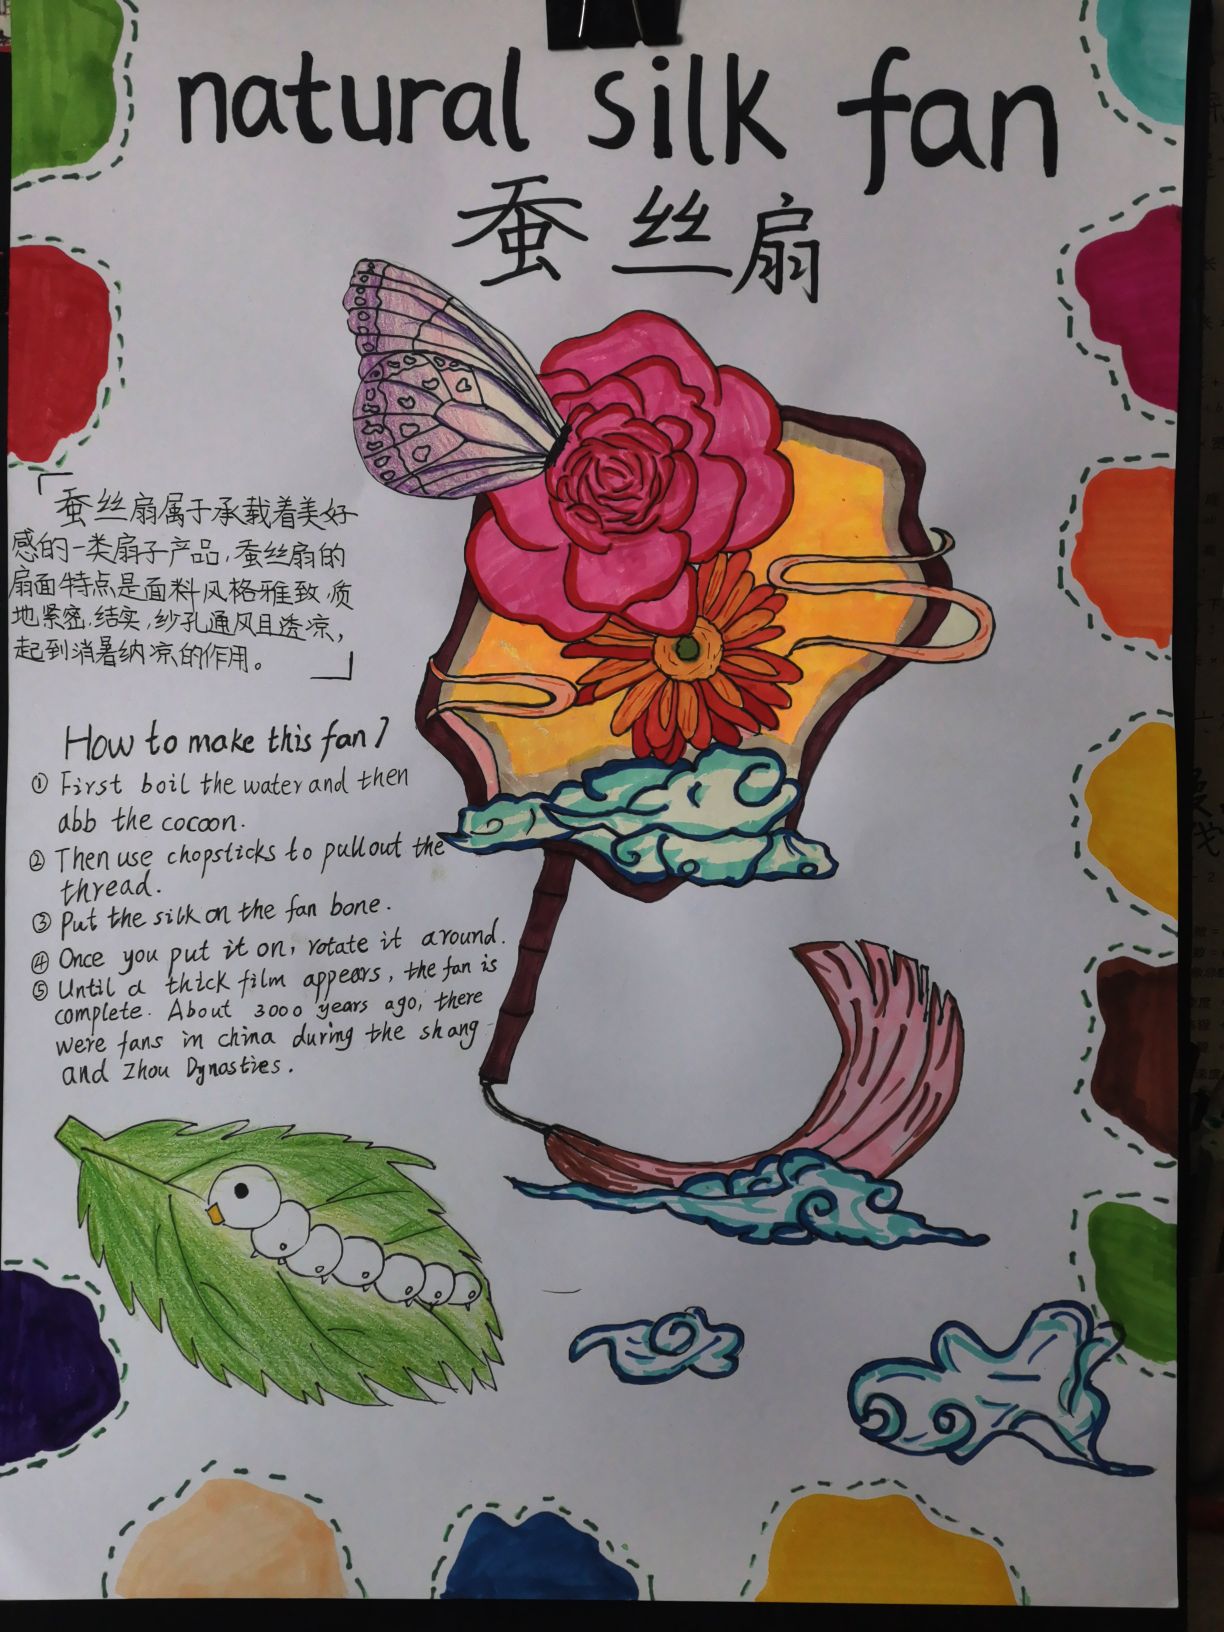 natural silk fan
蚕丝扇
「蚕丝扇属于承载着美好
感的一类扇子产品,蚕丝扇的
扇面特点是面料风格雅致,质
地紧密、结实,纱孔通风且透凉,
起到消暑纳凉的作用。」
How to make this fan?
① First boil the water and then
abb the cocoon.
② Then use chopsticks to pull out the
thread.
③ Put the silk on the fan bone.
④ Once you put it on, rotate it around.
⑤ Until a thick film appears, the fan is
complete. About 3000 years ago, there
were fans in china during the shang
and Zhou Dynasties.